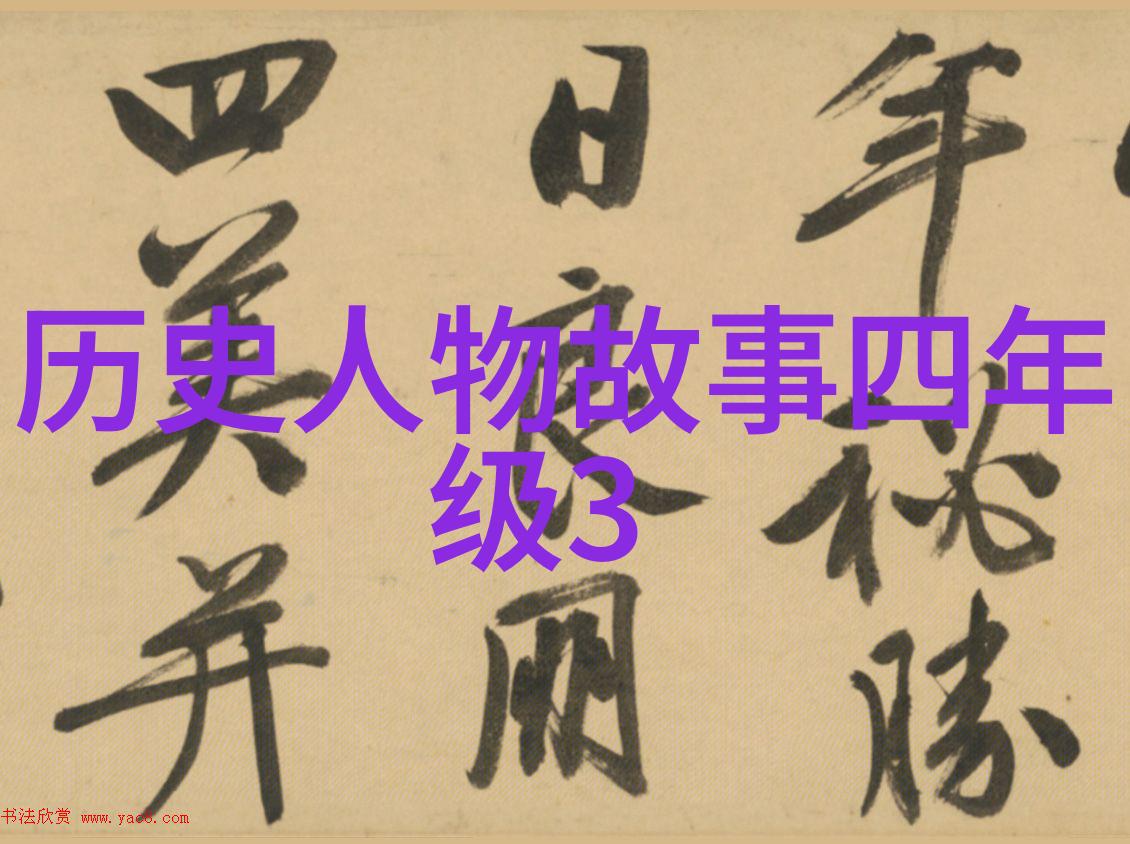 历史人物故事四年
级3
年秘勝
日良朋
四美并
书法欣赏 www.yac8.com